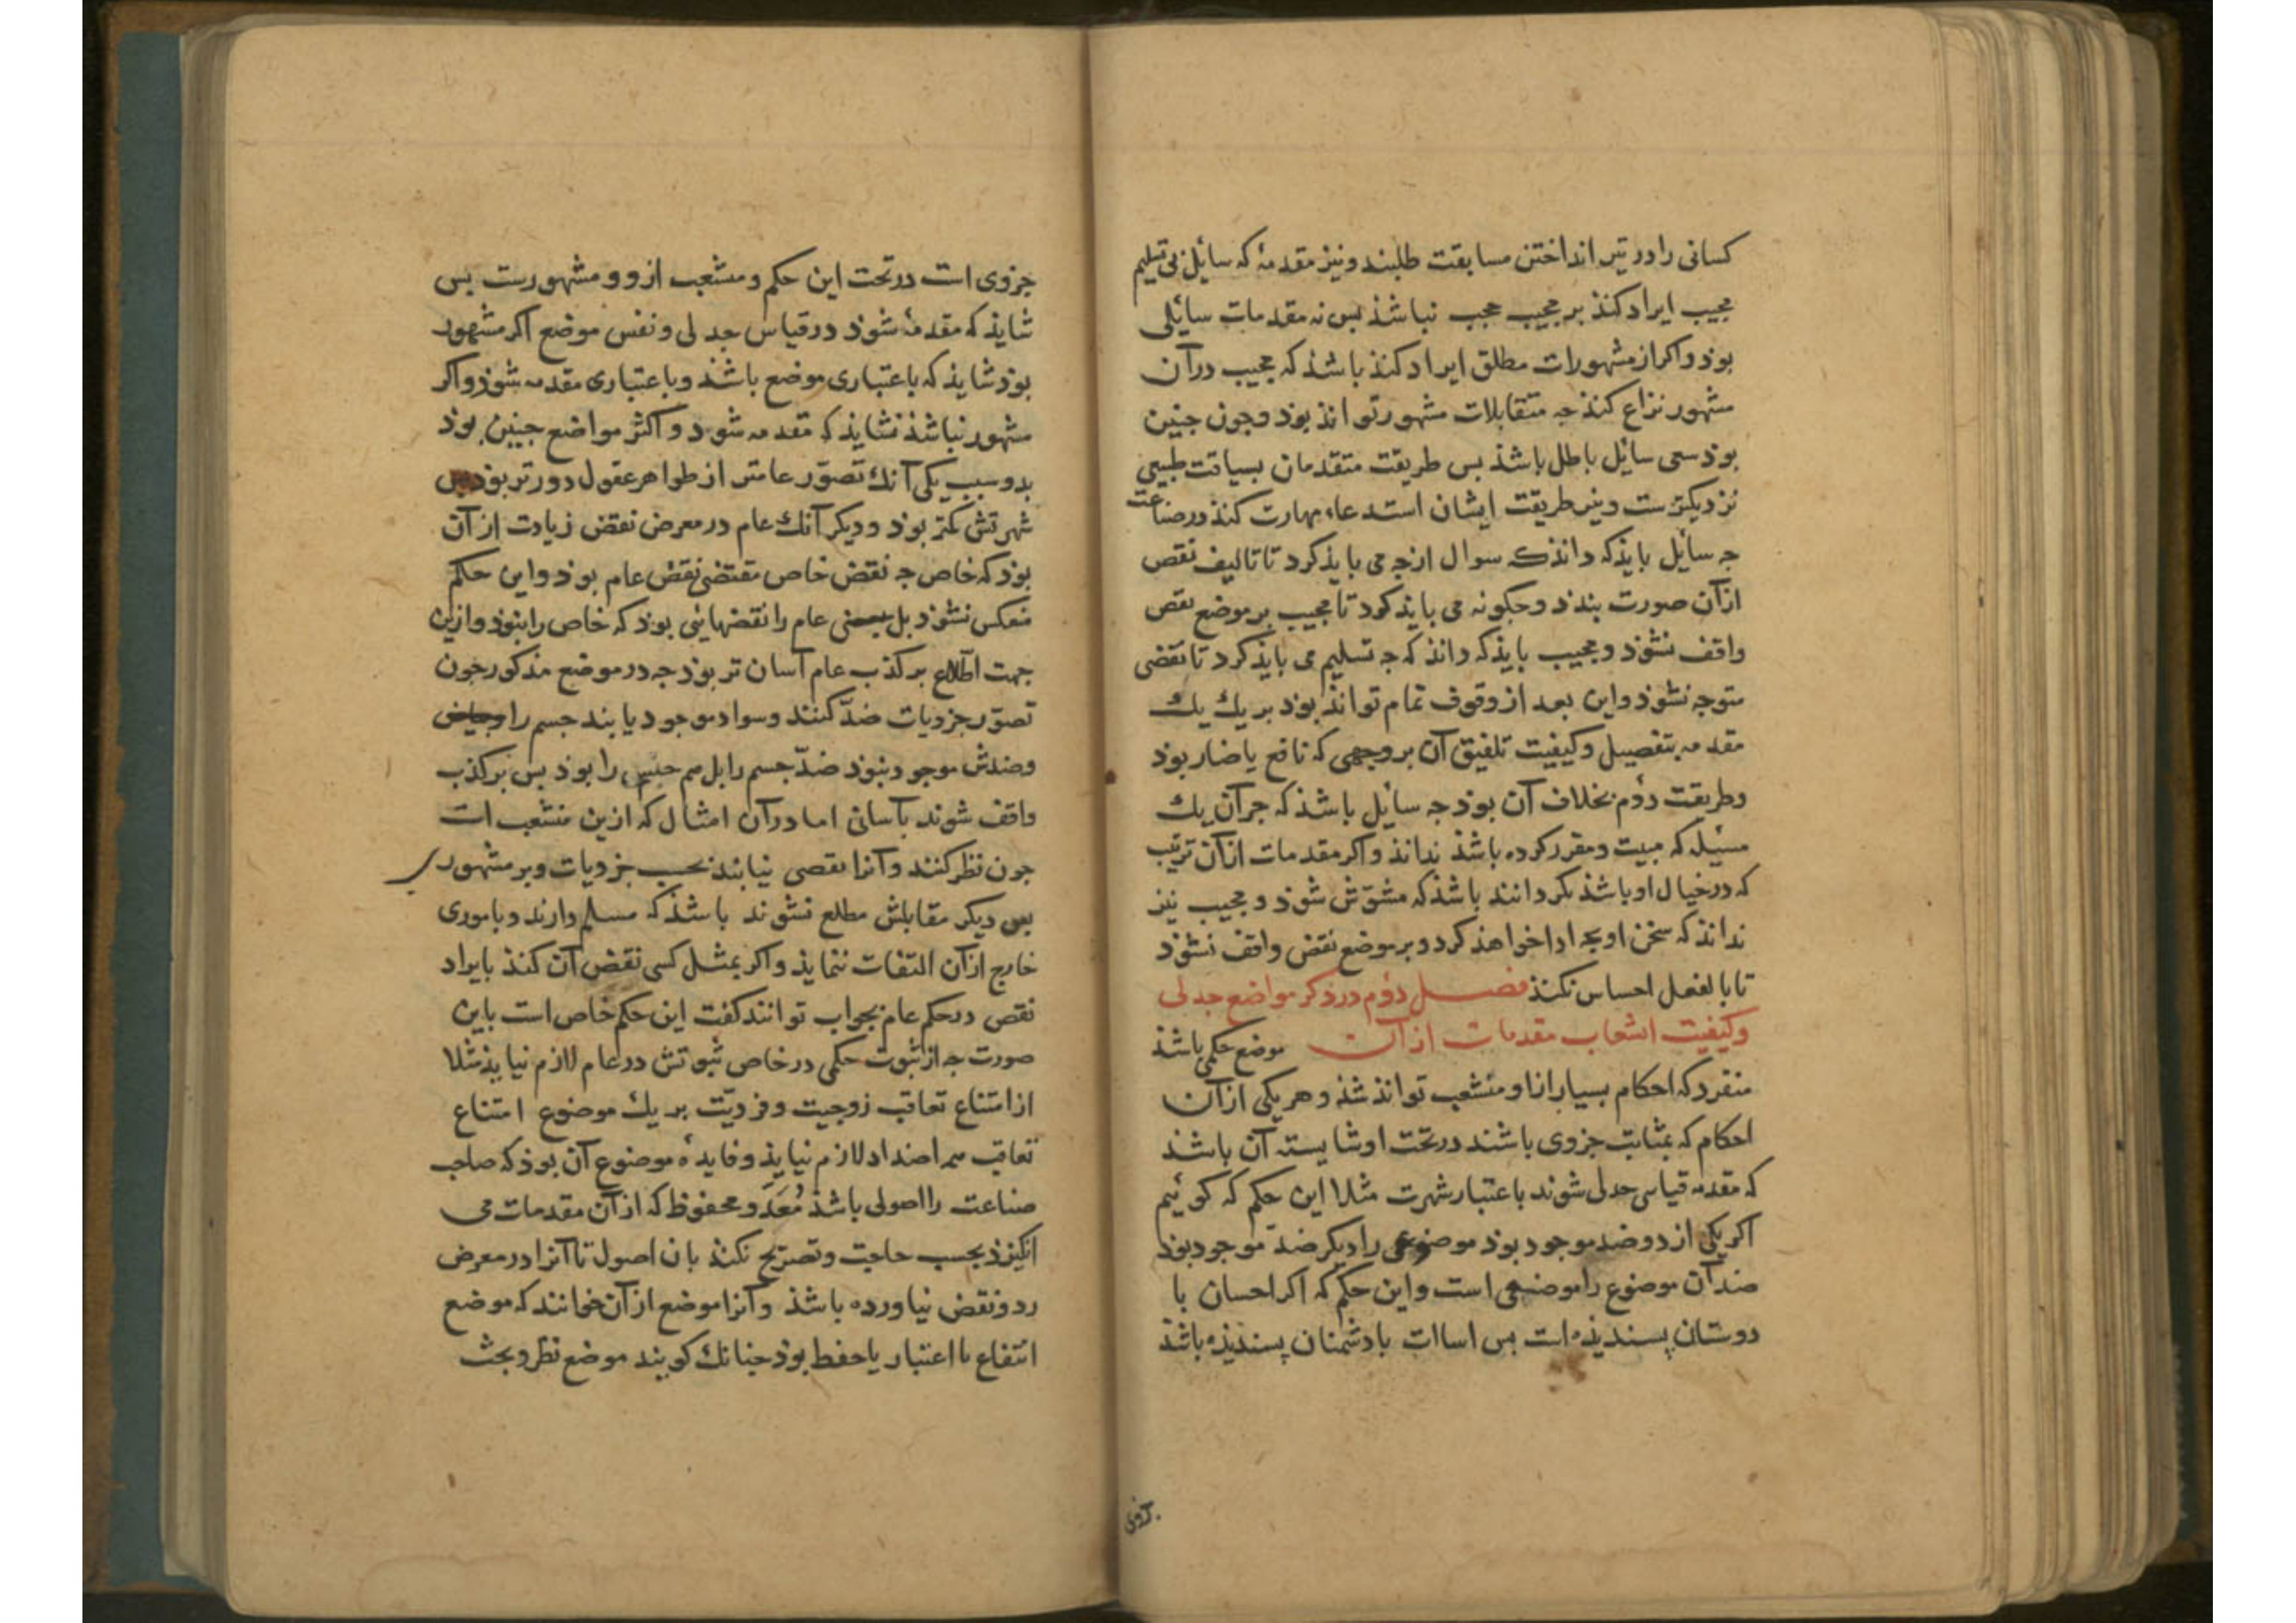 کسانی را در تیر انداختن مسابقت طلبند و نیز مقدمهٔ که سائل بی تسلیم
مجیب ایراد کنذ بر مجیب حجب نباشذ بس نه مقدمات سائلی
بوذ و اکر از مشهورات مطلق ایراد کنذ باشذ که مجیب در آن
مشهور نزاع کنذ جه متقابلات مشهور تواند بوذ و جون جنین
بوذ سعی سائل باطل باشذ بس طریقت متقدمان بسیاقت طبیعی
نزدیکترست و نیز طریقت ایشان استدعاء مهارت کنذ در صناعت
جه سائل بایذ که دانذ که سوال از جه می بایذ کرد تا تالیف نقص
ازان صورت بندد و جکونه می بایذ کرد تا مجیب بر موضع نقص
واقف نشوذ و مجیب بایذ که دانذ که جه تسلیم می بایذ کرد تا نقضی
متوجه نشوذ و این بعد از وقوف تمام تواند بوذ بر یک یک
مقدمه بتفصیل و کیفیت تلفیق آن بر وجهی که نافع یا ضار بوذ
و طریقت دوم بخلاف آن بوذ جه سائل باشذ که جز آن یک
مسئله که مبیت و مقرر کرده باشذ نداند و اکر مقدمات از آن ترتیب
که در خیال او باشذ بکردانند باشذ که مشوّش شوذ و مجیب نیز
نداند که سخن او بجه ادا خواهذ کرد و بر موضع نقض واقف نشوذ
تا بالفعل احساس نکنذ فصل دوم در ذکر مواضع جدلی
و کیفیت انشعاب مقدمات از آن موضع حکمی باشذ
منفرد که احکام بسیار ازاو منشعب تواند شذ و هر یکی از آن
احکام که بمثابت جزوی باشند در تحت او شایسته آن باشذ
که مقدمه قیاسی جدلی شوند باعتبار شهرت مثلا این حکم که کوئیم
اکر یکی از دو ضد موجود بوذ موضوعی را دیکر ضد موجود بوذ
ضد آن موضوع را موضعی است و این حکم که اکر احسان با
دوستان بسندیذه است بس اساات با دشمنان بسندیذه باشذ
جزوی
جزوی است در تحت این حکم و منشعب ازو و مشهورست بس
شایذ که مقدمهٔ شوذ در قیاس جدلی و نفس موضع اکر مشهور
بوذ شایذ که باعتباری موضع باشذ و باعتباری مقدمه شوذ و اکر
مشهور نباشذ نشایذ که مقدمه شوذ و اکثر مواضع جنین بوذ
بدو سبب یکی آنک تصوّر عامتر از ظواهر عقول دورتر بوذ بس
شهرتش کمتر بوذ و دیکر آنک عام در معرض نقض زیادت از آن
بوذ که خاص جه نقض خاص مقتضی نقض عام بوذ و این حکم
منعکس نشوذ بل عام را نقضهایی بوذ که خاص را نبوذ و ازین
جهت اطّلاع بر کذب عام آسان تر بوذ جه در موضع مذکور جون
تصوّر جزویات ضدّ کنند و سواد موجود یابند جسم را
و ضدش موجود نبوذ ضدّ جسم را بل هم جسم را بوذ بس بر کذب
واقف شوند بآسانی اما در آن امثال که ازین منشعب است
جون نظر کنند و آنرا نقصی نیابند بحسب جزویات و بر مشهوری
دیکر مقابلش مطلع نشوند باشذ که مسلم دارند و باموری
خارج از آن التفات ننمایذ و اکر بمثل کسی نقض آن کنذ بایراد
نقص در حکم عام بجواب توانند کفت این حکم خاص است باین
صورت جه از ثبوت حکمی در خاص ثبوتش در عام لازم نیایذ مثلا
از امتناع تعاقب زوجیت و فردیّت بر یک موضوع امتناع
تعاقب همه اضداد لازم نیایذ و فایدهٔ موضوع آن بوذ که صاحب
صناعت را اصولی باشذ مُعَدّ و محفوظ که از آن مقدمات می
انکیزذ بحسب حاجت و تصریح نکنذ بان اصول تا آنرا در معرض
رد و نقض نیاورده باشذ و آنرا موضع از آن خوانند که موضع
انتفاع با اعتبار یا حفظ بوذ جنانک کویند موضع نظر و بحث